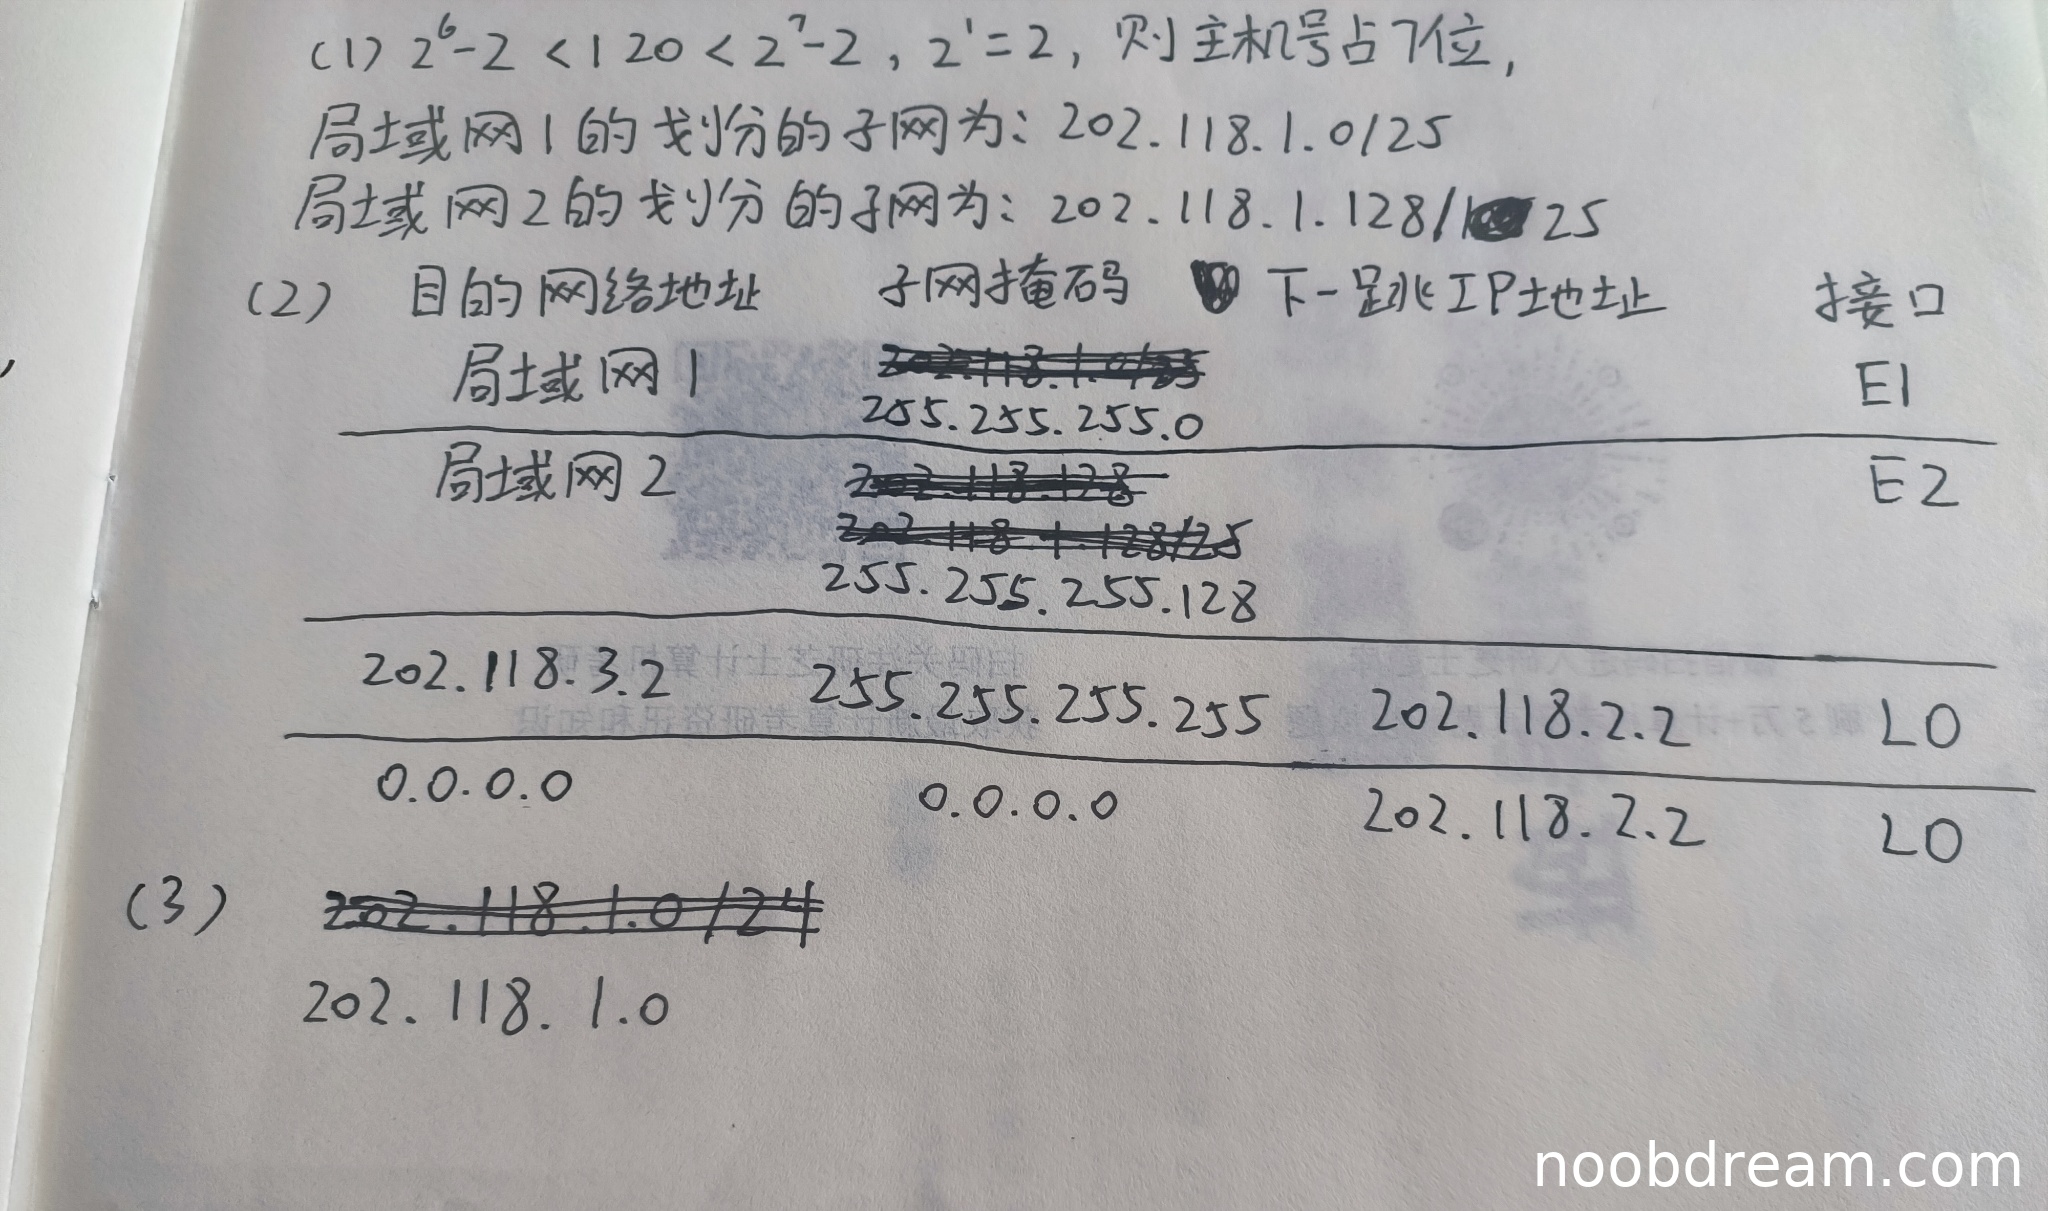 (1) 2⁶-2 < 120 < 2⁷-2, 2¹=2, 则主机号占7位,
局域网1的划分的子网为: 202.118.1.0/25
局域网2的划分的子网为: 202.118.1.128/25
(2) 目的网络地址 子网掩码 下一跳IP地址 接口
局域网1 202.118.1.0/25 E1
255.255.255.0
局域网2 202.118.128 E2
202.118.1.128/25
255.255.255.128
202.118.3.2 255.255.255.255 202.118.2.2 L0
0.0.0.0 0.0.0.0 202.118.2.2 L0
(3) 202.118.1.0/24
202.118.1.0
noobdream.com